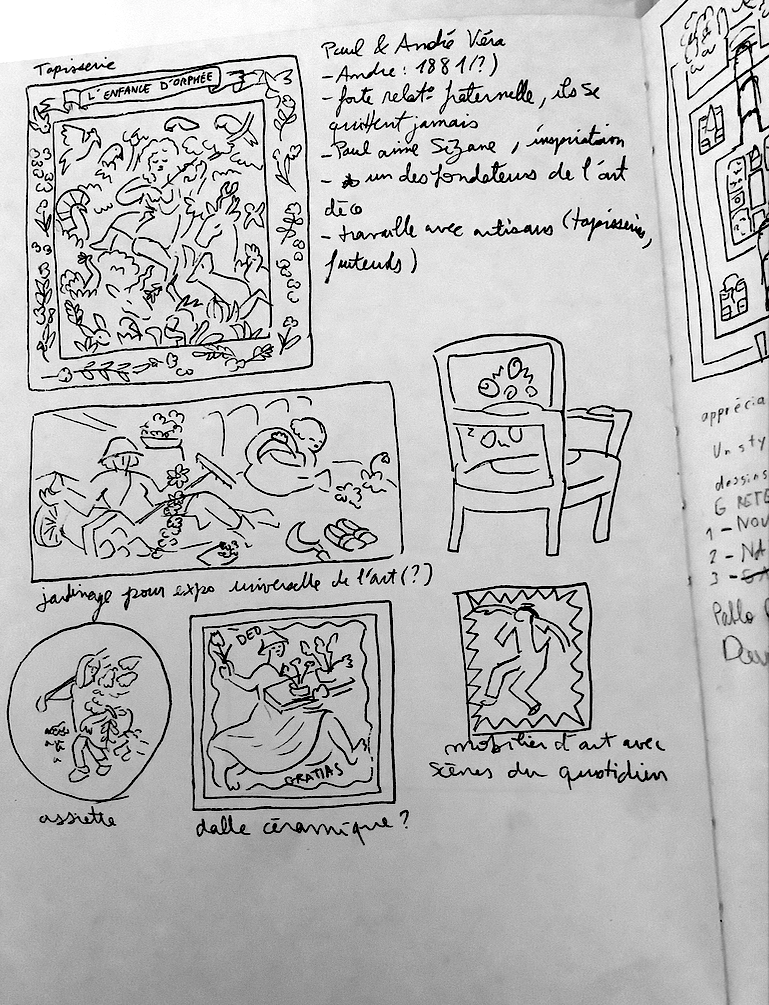 Tapisserie
L'ENFANCE D'ORPHÉE
Paul & André Véra
- Andre : 1881(?)
- forte relat° fraternelle, ils se
quittent jamais
- Paul aime Sézane, inspiration
- un des fondateurs de l'art
déco
- travaille avec artisans (tapisseries,
fauteuils)
jardinage pour expo universelle de l'art (?)
DEO
GRATIAS
assiette
dalle céramique ?
mobilier d'art avec
scènes du quotidien
apprécia
Un sty
dessins
G RETE
1 - NOU
2 - NA
3 -
Pablo